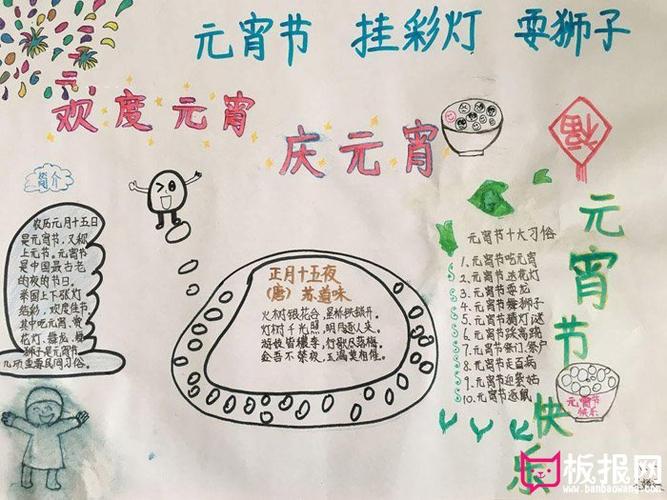 元宵节 挂彩灯 耍狮子
欢度元宵
庆元宵
福
简介
农历元月十五日
是元宵节,又称
上元节。元宵节
是中国最古老
的夜的节日。
举国上下张灯
结彩,欢度佳节
其中吃元宵、赏
花灯、舞龙、舞
狮子是元宵节
几项重要民间习俗。
正月十五夜
(唐) 苏道味
火树银花合,星桥铁锁开。
灯树千光照,明月逐人来。
游伎皆秾李,行歌尽落梅。
金吾不禁夜,玉漏莫相催。
元宵节十大习俗
1.元宵节吃元宵
2.元宵节送花灯
3.元宵节耍龙
4.元宵节舞狮子
5.元宵节猜灯谜
6.元宵节踩高跷
7.元宵节祭门、祭户
8.元宵节走百病
9.元宵节迎紫姑
10.元宵节逐鼠
元宵节快乐
元宵节
快乐
板报网
www.banbaowang.com